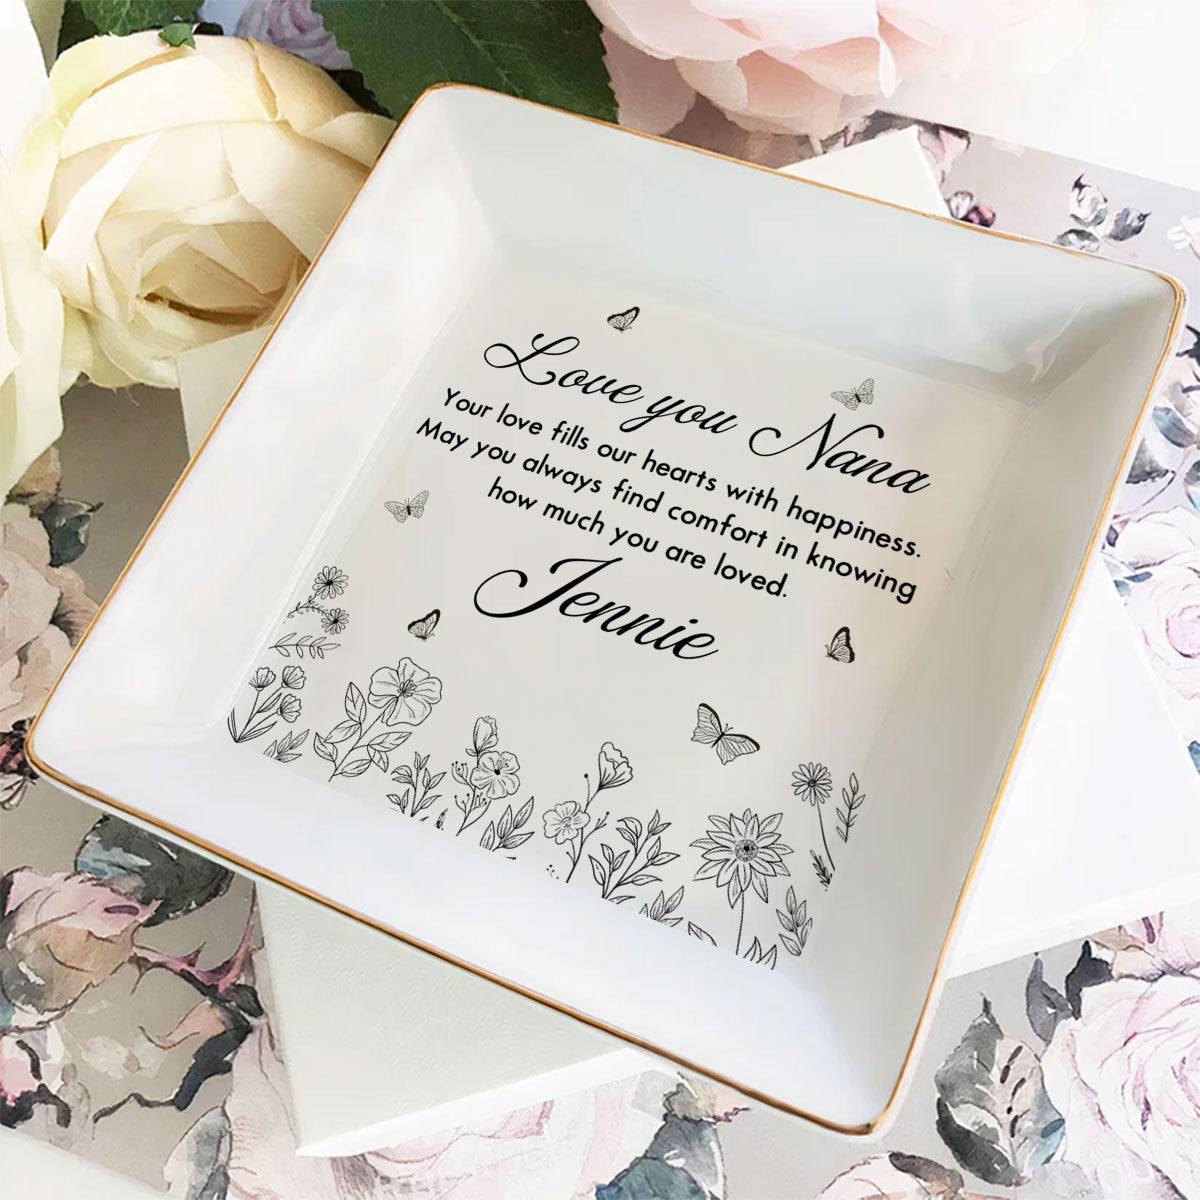 Love you Nana
Your love fills our hearts with happiness.
May you always find comfort in knowing
how much you are loved.
Jennie